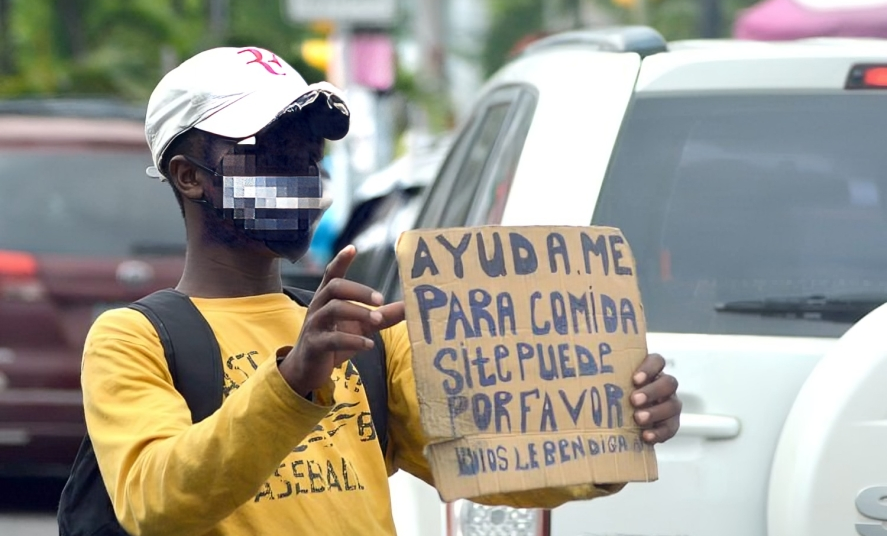 AYUDA.ME
PARA COMIDA
Si te PUEDE
POR FAVOR
DIOS LE BENDIGA
BASEBALL